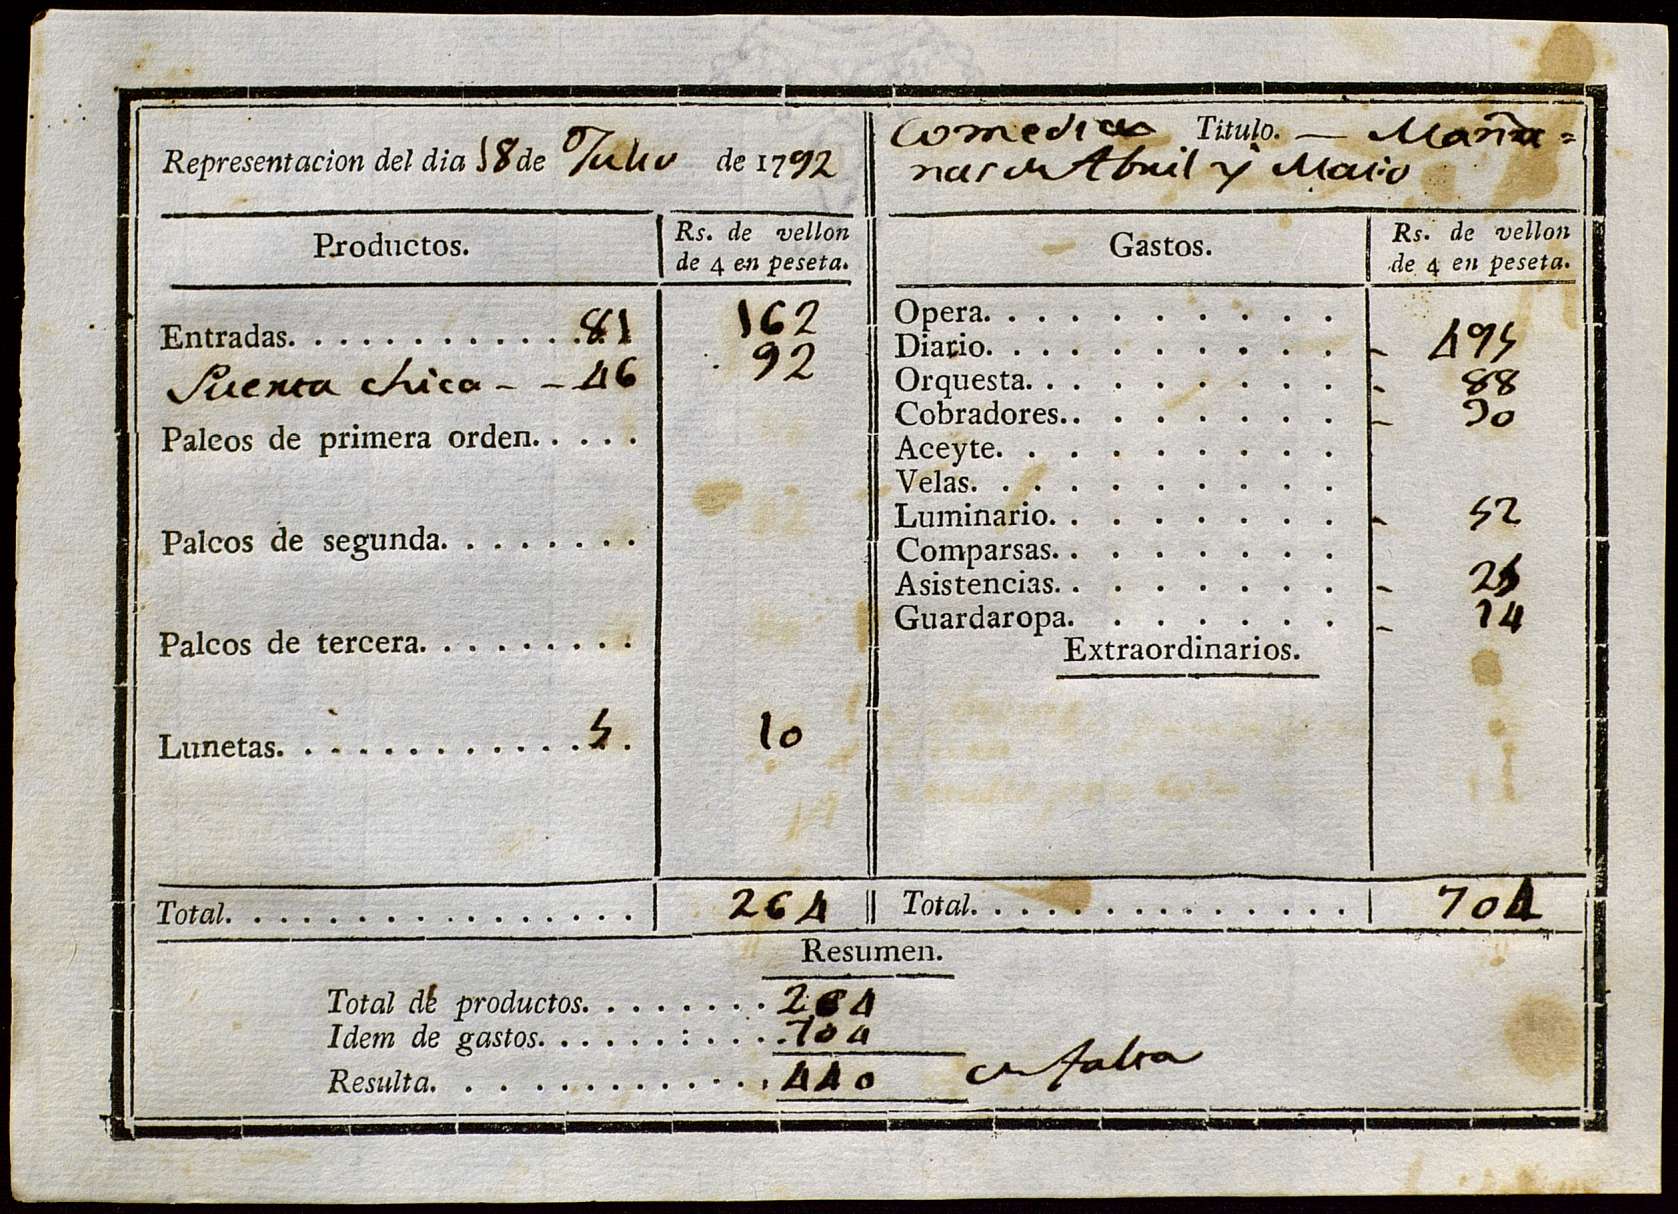 Representacion del dia 18 de Julio de 1792
Comedia Titulo. — Maña=
nas de Abril y Maio
Productos.
Rs. de vellon
de 4 en peseta.
Entradas. . . . . . . . . . . . . 81 162
Puerta chica - - 46 92
Palcos de primera orden. . . . .
Palcos de segunda. . . . . . . .
Palcos de tercera. . . . . . . . .
Lunetas. . . . . . . . . . . . . 5 . 10
Total. . . . . . . . . . . . . . . . 264
Gastos.
Rs. de vellon
de 4 en peseta.
Opera. . . . . . . . . .
Diario. . . . . . . . . . - 495
Orquesta. . . . . . . . . - 88
Cobradores. . . . . . . . - 30
Aceyte. . . . . . . . . .
Velas. . . . . . . . . .
Luminario. . . . . . . . - 52
Comparsas. . . . . . . .
Asistencias. . . . . . . . - 25
Guardaropa. . . . . . . - 14
Extraordinarios.
Total. . . . . . . . . . . . . . . 704
Resumen.
Total de productos. . . . . . . . 264
Idem de gastos. . . . . . : . . . . 704
Resulta. . . . . . . . . . . . . 440 en falta